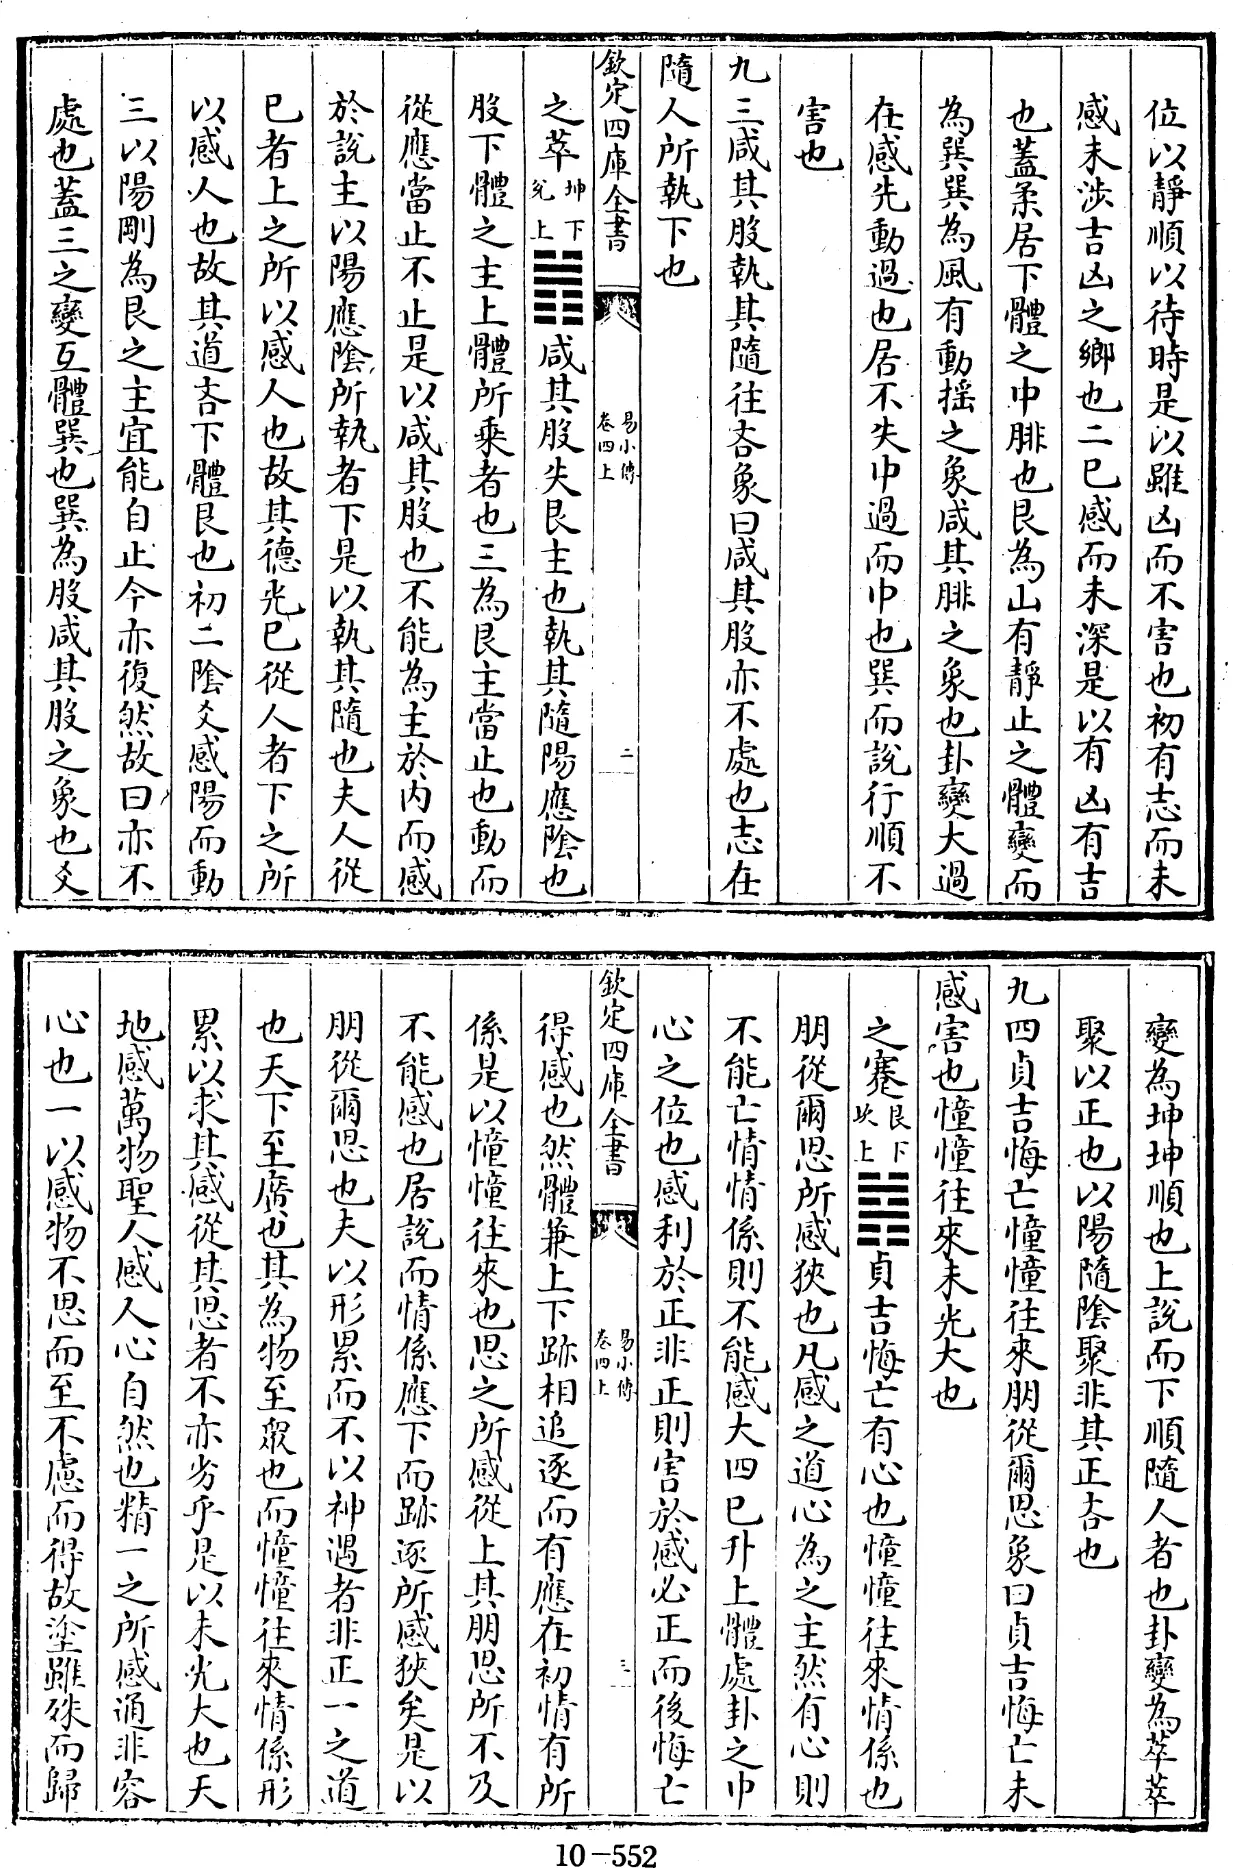 位以靜順以待時是以雖凶而不害也初有志而未
感未涉吉凶之鄉也二已感而未深是以有凶有吉
也蓋柔居下體之中腓也艮為山有靜止之體變而
為巽巽為風有動揺之象咸其腓之象也卦變大過
在感先動過也居不失中過而中也巽而說行順不
害也
九三咸其股執其隨往吝象曰咸其股亦不處也志在
隨人所執下也
欽定四庫全書
易小傳
卷四上
二
之萃坤下兌上䷬咸其股失艮主也執其隨陽應陰也
股下體之主上體所乘者也三為艮主當止也動而
從應當止不止是以咸其股也不能為主於内而感
於說主以陽應陰所執者下是以執其隨也夫人從
已者上之所以感人也故其德光已從人者下之所
以感人也故其道吝下體艮也初二陰爻感陽而動
三以陽剛為艮之主宜能自止今亦復然故曰亦不
處也蓋三之變互體巽也巽為股咸其股之象也爻
變為坤坤順也上說而下順隨人者也卦變為萃萃
聚以正也以陽隨陰聚非其正吝也
九四貞吉悔亡憧憧往來朋從爾思象曰貞吉悔亡未
感害也憧憧往來未光大也
之蹇艮下坎上䷦貞吉悔亡有心也憧憧往來情係也
朋從爾思所感狹也凡感之道心為之主然有心則
不能亡情情係則不能感大四已升上體處卦之中
心之位也感利於正非正則害於感必正而後悔亡
欽定四庫全書
易小傳
卷四上
三
得感也然體兼上下跡相追逐而有應在初情有所
係是以憧憧往來也思之所感從上其朋思所不及
不能感也居說而情係應下而跡逐所感狹矣是以
朋從爾思也夫以形累而不以神遇者非正一之道
也天下至廣也其為物至衆也而憧憧往來情係形
累以求其感從其思者不亦劣乎是以未光大也天
地感萬物聖人感人心自然也精一之所感通非容
心也一以感物不思而至不慮而得故塗雖殊而歸
10-552